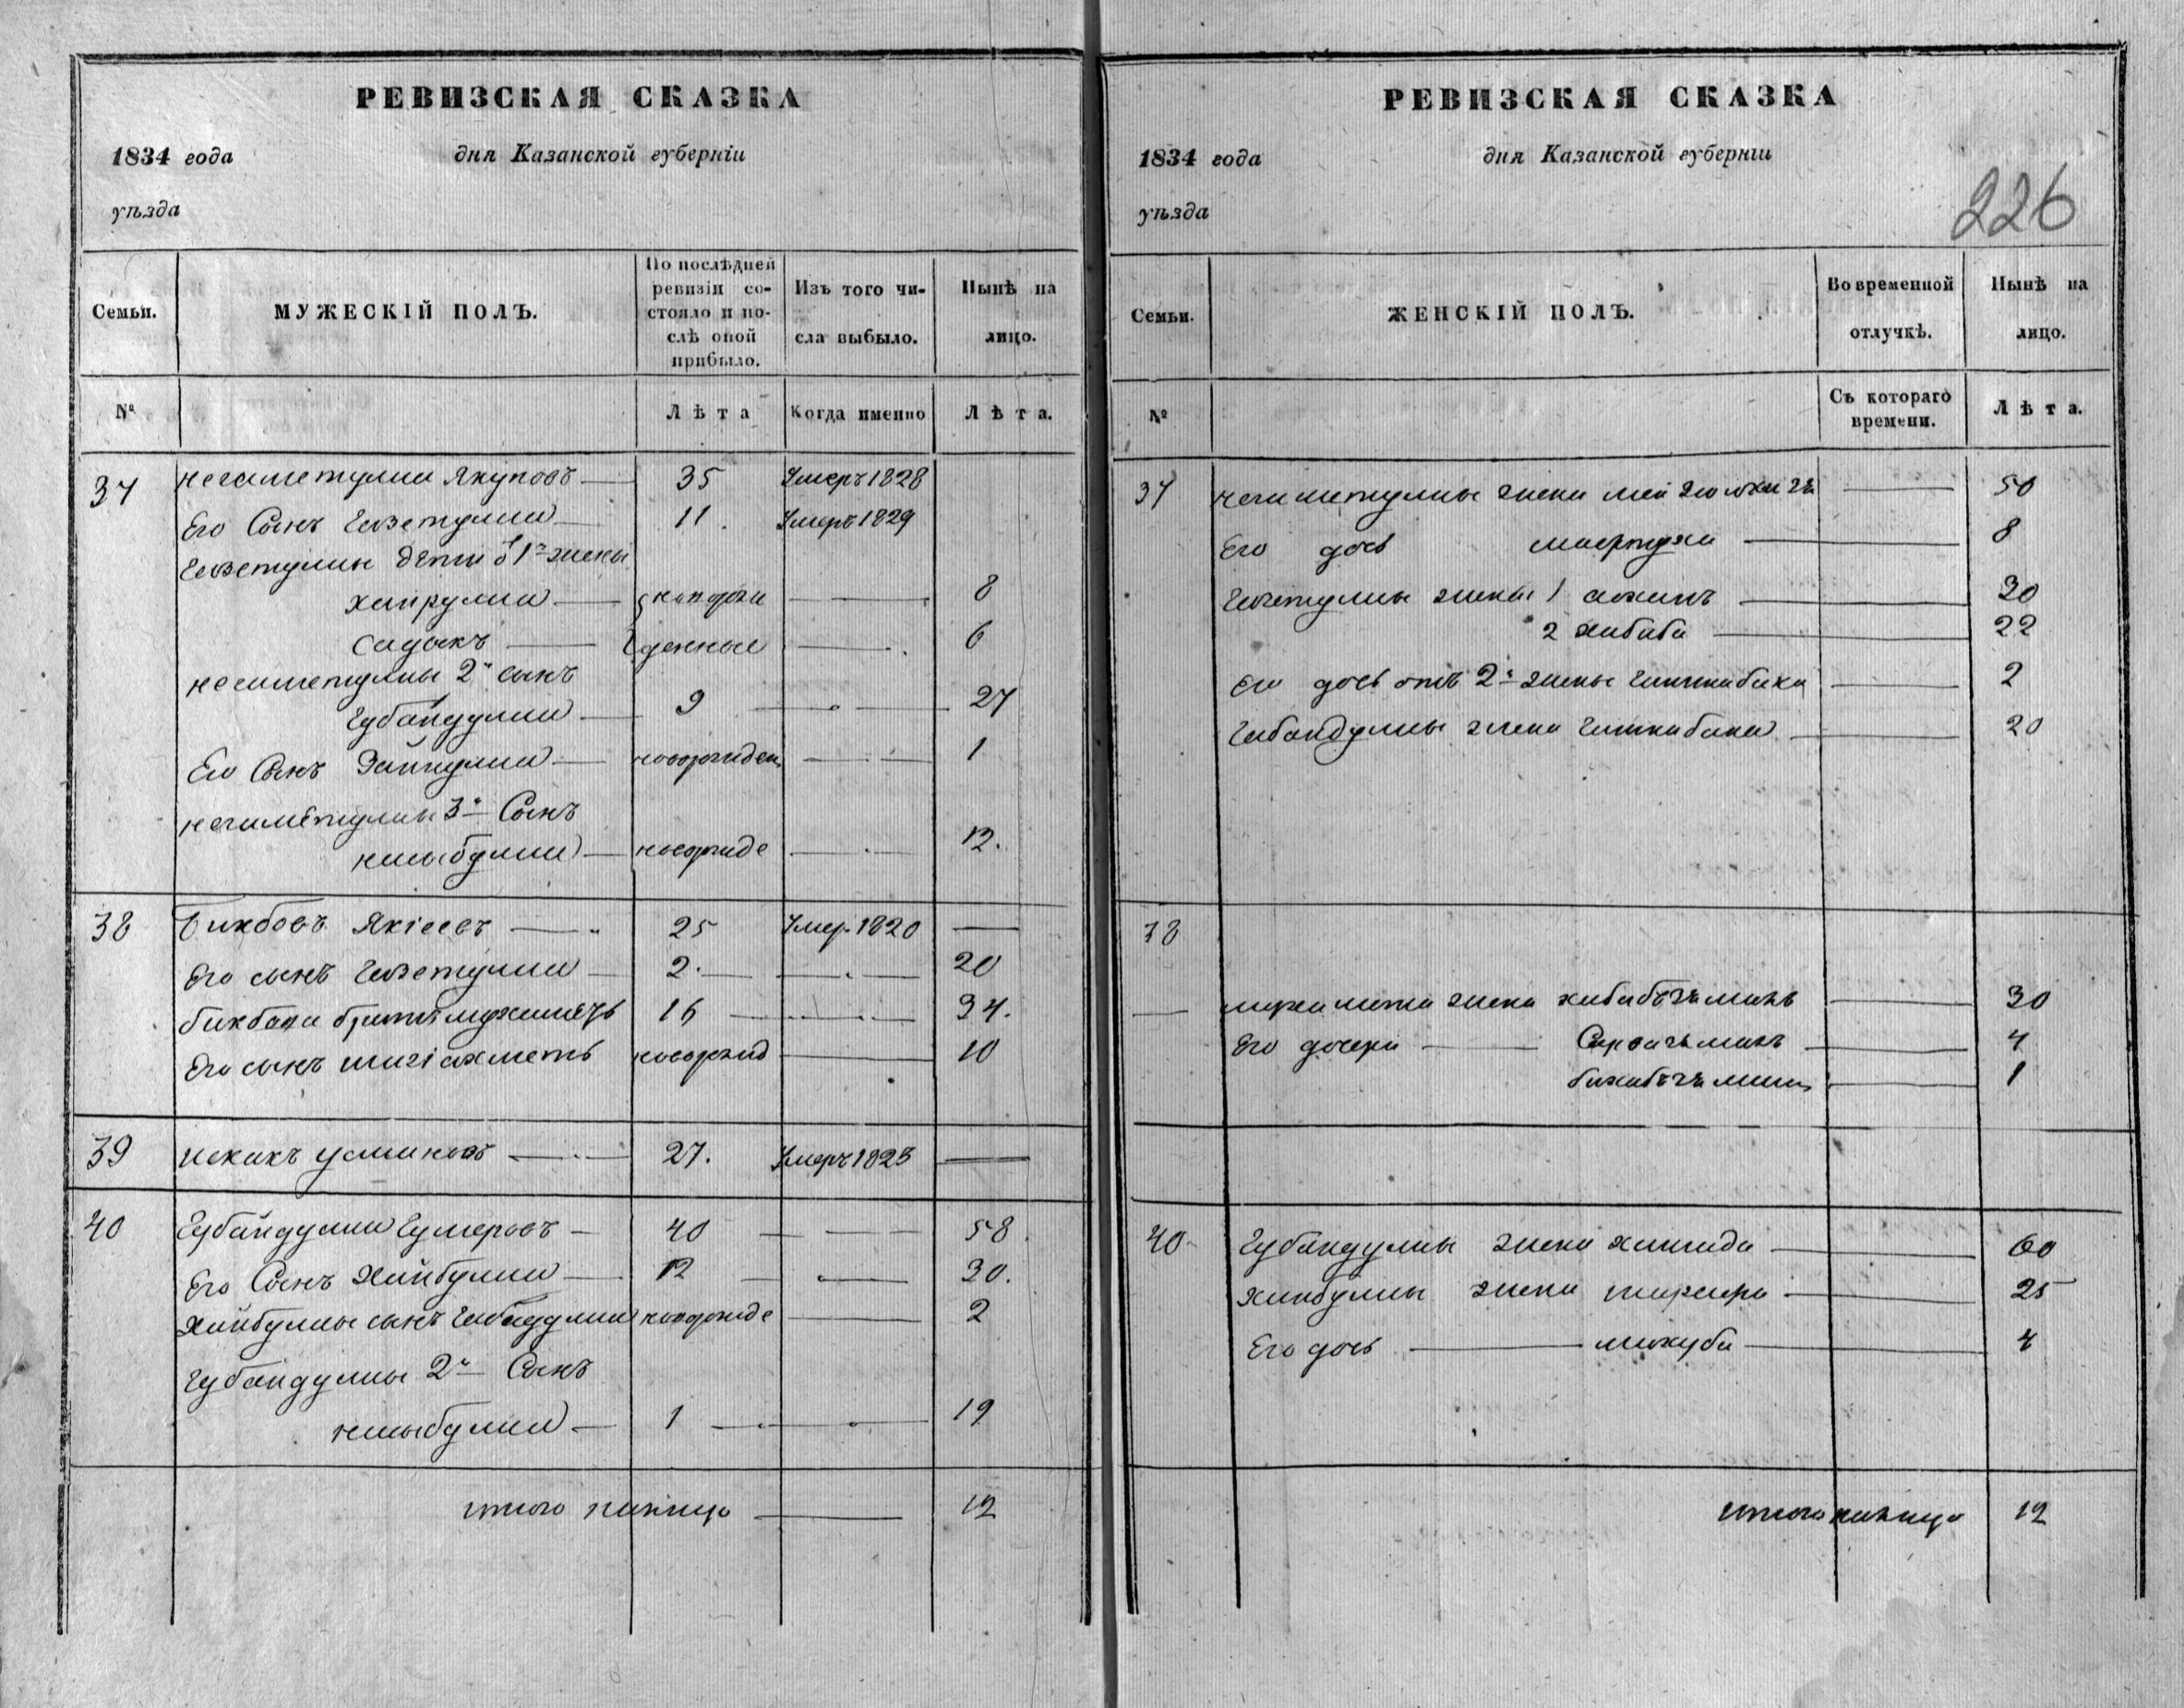 РЕВИЗСКАЯ СКАЗКА
1834 года дня Казанской губерніи
уѣзда
Семьи.
МУЖЕСКІЙ ПОЛЪ.
По послѣдней ревизіи со-
стояло и по-
слѣ оной
прибыло.
Изъ того чи-
сла выбыло.
Нынѣ на
лицо.
№ Лѣта Когда именно Лѣта.
37 Негаметулла Якуповъ 35 Умеръ 1828
Его Сынъ Гизетулла 11. Умеръ 1829
Гизетуллы дети 1й жены
Хайрулла 8
Садыкъ 6
Негаметуллы 2й сынъ
Губайдулла 9 27
Его Сынъ Зайнулла новорожден 1
Негаметуллы 3й Сынъ
новорожде 12.
38 Бикбовъ 25 Умер. 1820
Его сынъ Гизетулла 2. 20
16 34.
Его сынъ новорожд 10
39 Искакъ Усмановъ 27. Умеръ 1823
40 Губайдулла Гумеровъ 40 58
Его Сынъ Хайбулла 12 30.
Хайбуллы сынъ новорожде 2
Губайдуллы 2й Сынъ
1 19
итого налицо 12
РЕВИЗСКАЯ СКАЗКА
1834 года дня Казанской губерніи
уѣзда
226
Семьи.
ЖЕНСКІЙ ПОЛЪ.
Во временной
отлучкѣ.
Нынѣ на
лицо.
№ Съ котораго
времени.
Лѣта.
37 Негиметуллы жена 50
Его дочь 8
Гизетуллы жены 1 30
2 Хабиба 22
Его дочь отъ 2й жены 2
жена 20
38
жена 30
Его дочери 4
1
40 Губайдуллы жена Хамида 60
Хайбуллы жена 25
Его дочь 4
итого налицо 12